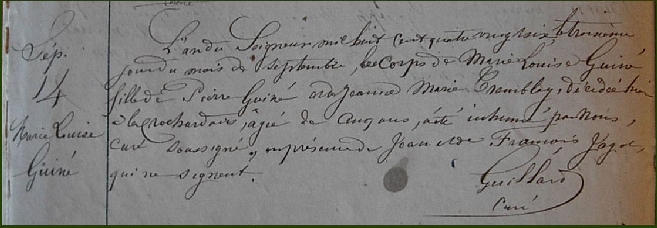 Sép.
14
Marie Louise
Guiné
L'an du Seigneur mil huit cent quatre vingt six le troisième
jour du mois de Septembre, le Corps de Marie Louise Guiné
fille de Pierre Guiné et de Jeanne Marie Trembley, décédée hier
à la rochardais, âgée de ans, a été inhumé par Nous,
Curé Soussigné, en présence de Jean et de François Jagot,
qui ne signent.
Guillard
Curé